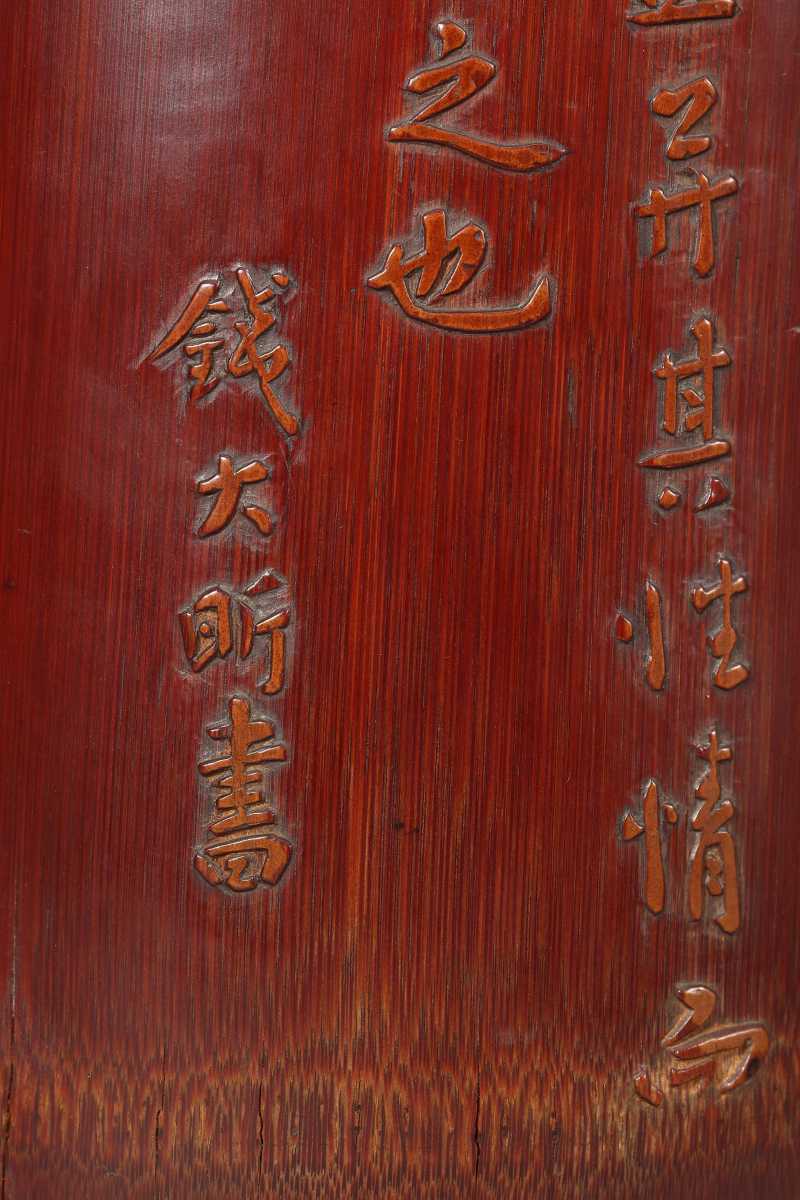 异其性情而
之也
錢大昕書